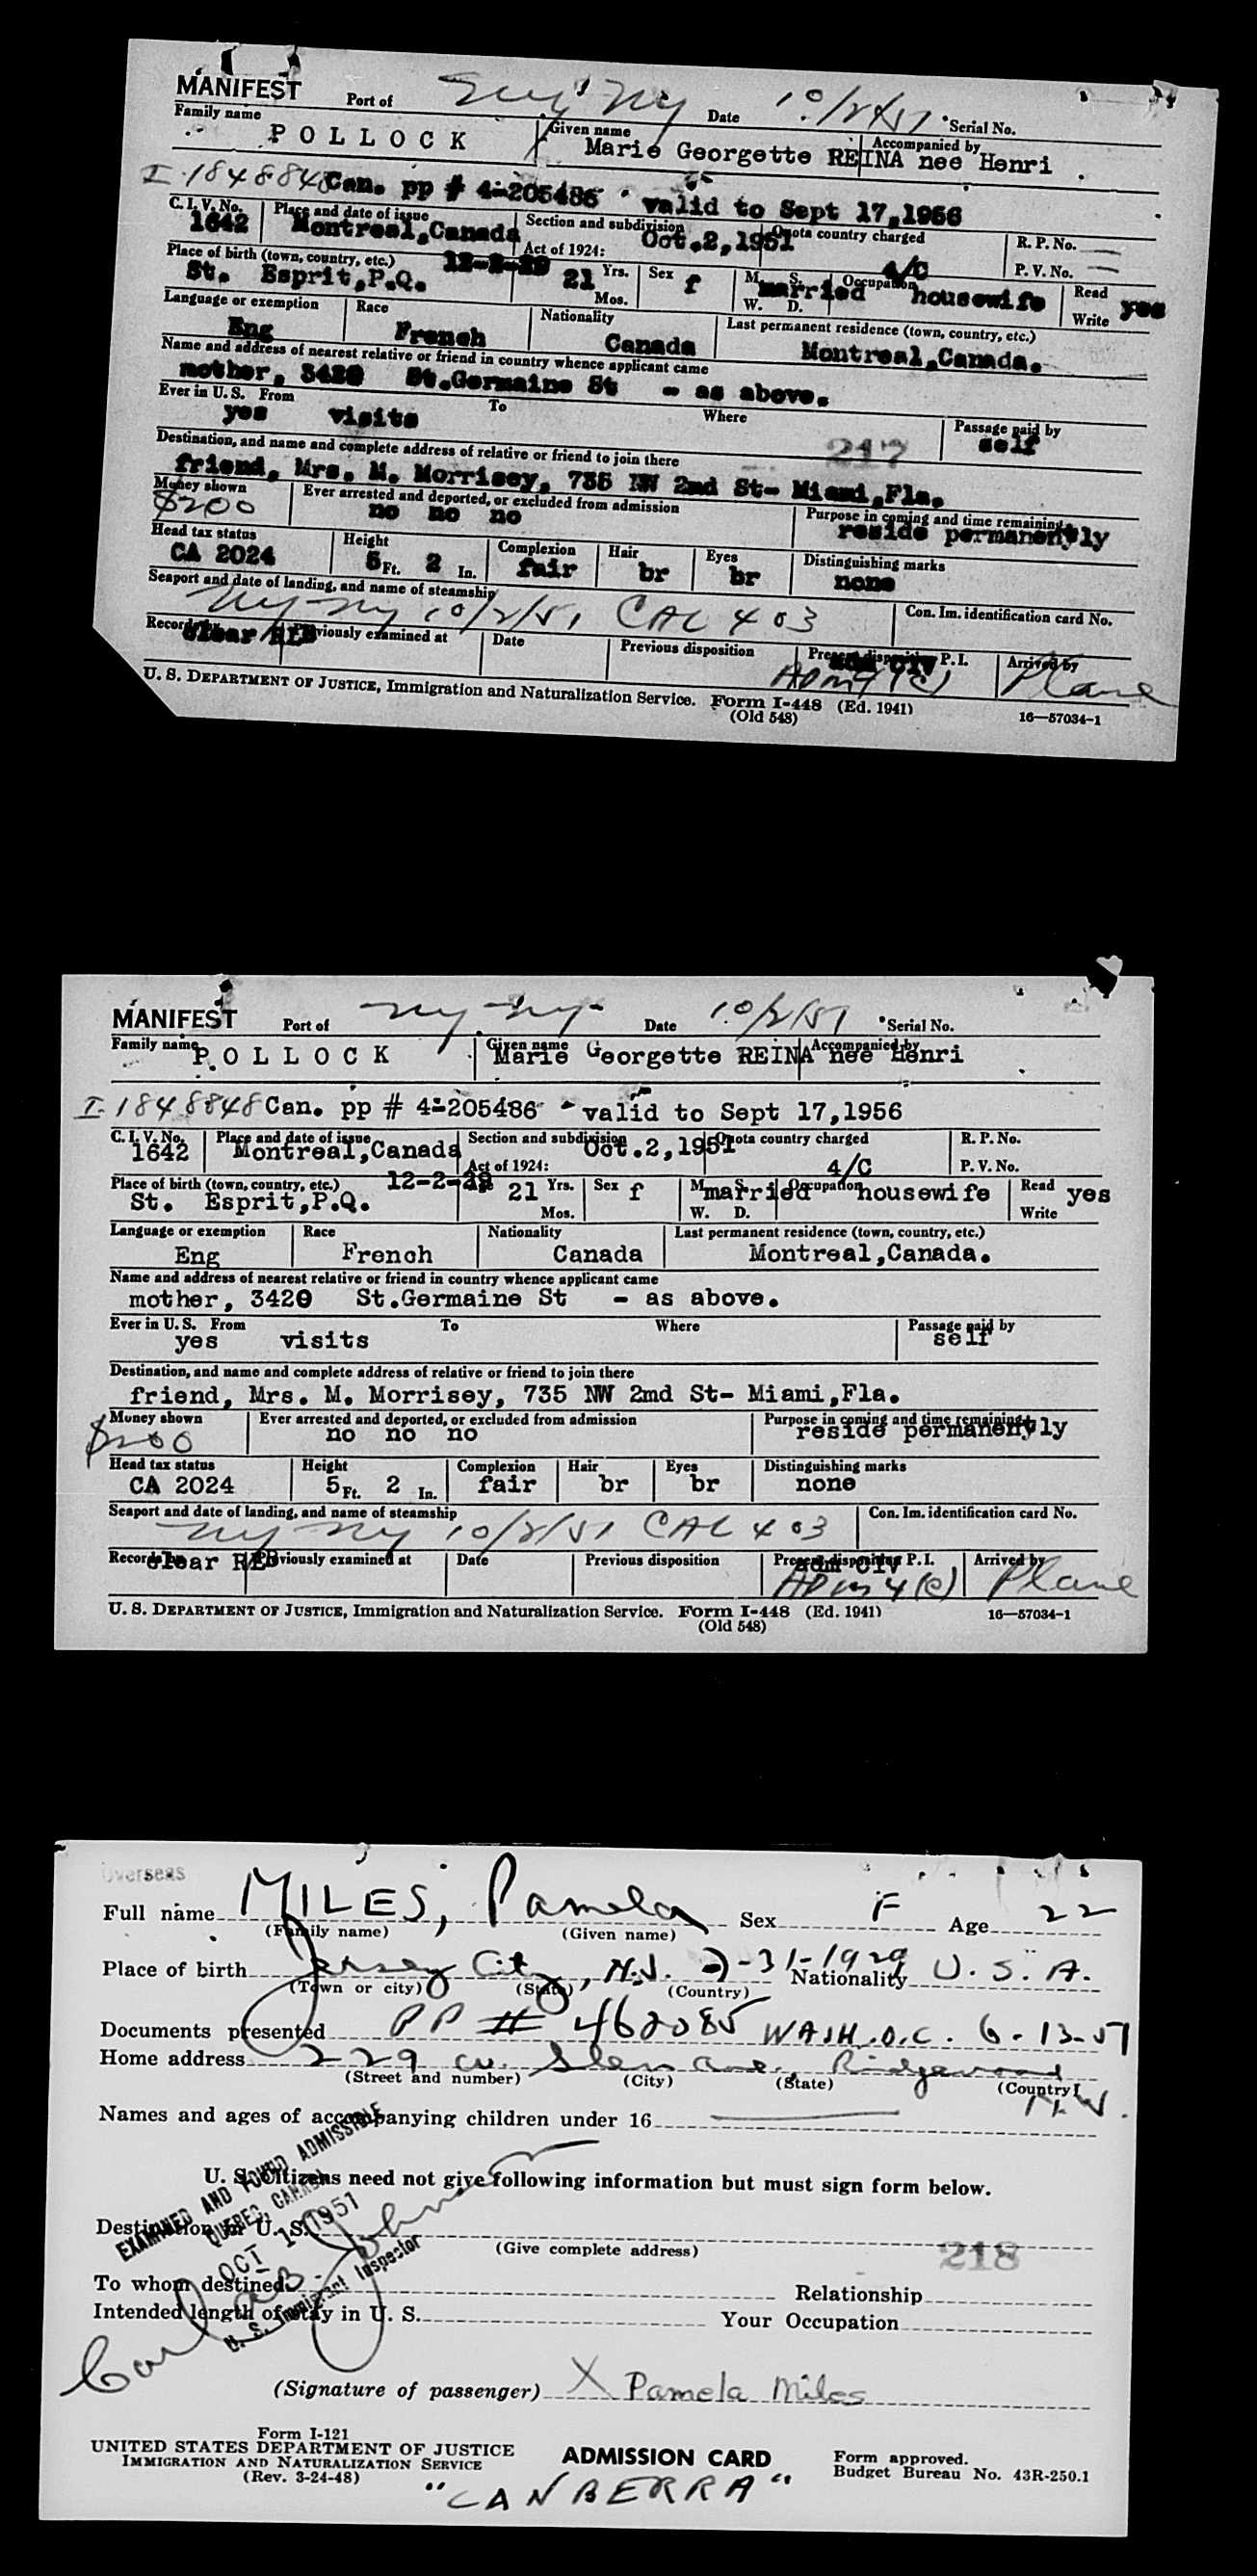 MANIFEST Port of NY. NY Date 10/2/51 Serial No.
Family name Given name Accompanied by
POLLOCK Marie Georgette REINA nee Henri
I-1848848 Can. pp # 4-205486 valid to Sept 17,1956
C. I. V. No. Place and date of issue Section and subdivision Quota country charged R. P. No. —
1642 Montreal,Canada Oct.2,1951
Act of 1924: 4/C P. V. No. —
Place of birth (town, country, etc.) 12-2-29 21 Yrs. Sex f M. S. married Occupation housewife Read yes
St. Esprit,P.Q. Mos. W. D. Write
Language or exemption Race Nationality Last permanent residence (town, country, etc.)
Eng French Canada Montreal,Canada.
Name and address of nearest relative or friend in country whence applicant came
mother, 3420 St.Germaine St - as above.
Ever in U. S. From To Where Passage paid by
yes visits self
217
Destination, and name and complete address of relative or friend to join there
friend, Mrs. M. Morrisey, 735 NW 2md St- Miami,Fla.
Money shown Ever arrested and deported, or excluded from admission Purpose in coming and time remaining
$200 no no no reside permanently
Head tax status Height Complexion Hair Eyes Distinguishing marks
CA 2024 5 Ft. 2 In. fair br br none
Seaport and date of landing, and name of steamship Con. Im. identification card No.
NY NY 10/2/51 CAL 403
Records by Previously examined at Date Previous disposition Present disposition P. I. Arrived by
clear REB adm CIV
ADM 4(c) Plane
U. S. DEPARTMENT OF JUSTICE, Immigration and Naturalization Service. Form I-448 (Ed. 1941) 16—57034-1
(Old 548)
MANIFEST Port of NY. NY. Date 10/2/51 Serial No.
Family name Given name Accompanied by
POLLOCK Marie Georgette REINA nee Henri
I-1848848 Can. pp # 4-205486 - valid to Sept 17,1956
C. I. V. No. Place and date of issue Section and subdivision Quota country charged R. P. No.
1642 Montreal,Canada Oct.2,1951
Act of 1924: 4/C P. V. No.
Place of birth (town, country, etc.) 12-2-29 Age 21 Yrs. Sex f M. S. married Occupation housewife Read yes
St. Esprit,P.Q. Mos. W. D. Write
Language or exemption Race Nationality Last permanent residence (town, country, etc.)
Eng French Canada Montreal,Canada.
Name and address of nearest relative or friend in country whence applicant came
mother, 3420 St.Germaine St - as above.
Ever in U. S. From To Where Passage paid by
yes visits self
Destination, and name and complete address of relative or friend to join there
friend, Mrs. M. Morrisey, 735 NW 2md St- Miami,Fla.
Money shown Ever arrested and deported, or excluded from admission Purpose in coming and time remaining
$200 no no no reside permanently
Head tax status Height Complexion Hair Eyes Distinguishing marks
CA 2024 5 Ft. 2 In. fair br br none
Seaport and date of landing, and name of steamship Con. Im. identification card No.
NY NY 10/2/51 CAL 403
Records by Previously examined at Date Previous disposition Present disposition P. I. Arrived by
clear REB adm CIV
ADM 4(c) Plane
U. S. DEPARTMENT OF JUSTICE, Immigration and Naturalization Service. Form I-448 (Ed. 1941) 16—57034-1
(Old 548)
Overseas
Full name MILES, Pamela Sex F Age 22
(Family name) (Given name)
Place of birth Jersey City, N.J. -31-1929 Nationality U.S.A.
(Town or city) (State) (Country)
Documents presented PP # 462085 WASH.D.C. 6-13-51
Home address 229 W. Glen Ave. Ridgewood
(Street and number) (City) (State) (Country)
N.J.
Names and ages of accompanying children under 16 —
U. S. Citizens need not give following information but must sign form below.
EXAMINED AND FOUND ADMISSIBLE
QUEBEC, CANADA
OCT 1 1951
U. S. Immigrant Inspector
Destination in U. S.
(Give complete address)
218
To whom destined Relationship
Intended length of stay in U. S. Your Occupation
(Signature of passenger) X Pamela Miles
Form I-121
UNITED STATES DEPARTMENT OF JUSTICE
IMMIGRATION AND NATURALIZATION SERVICE
(Rev. 3-24-48)
ADMISSION CARD
Form approved.
Budget Bureau No. 43R-250.1
"CANBERRA"